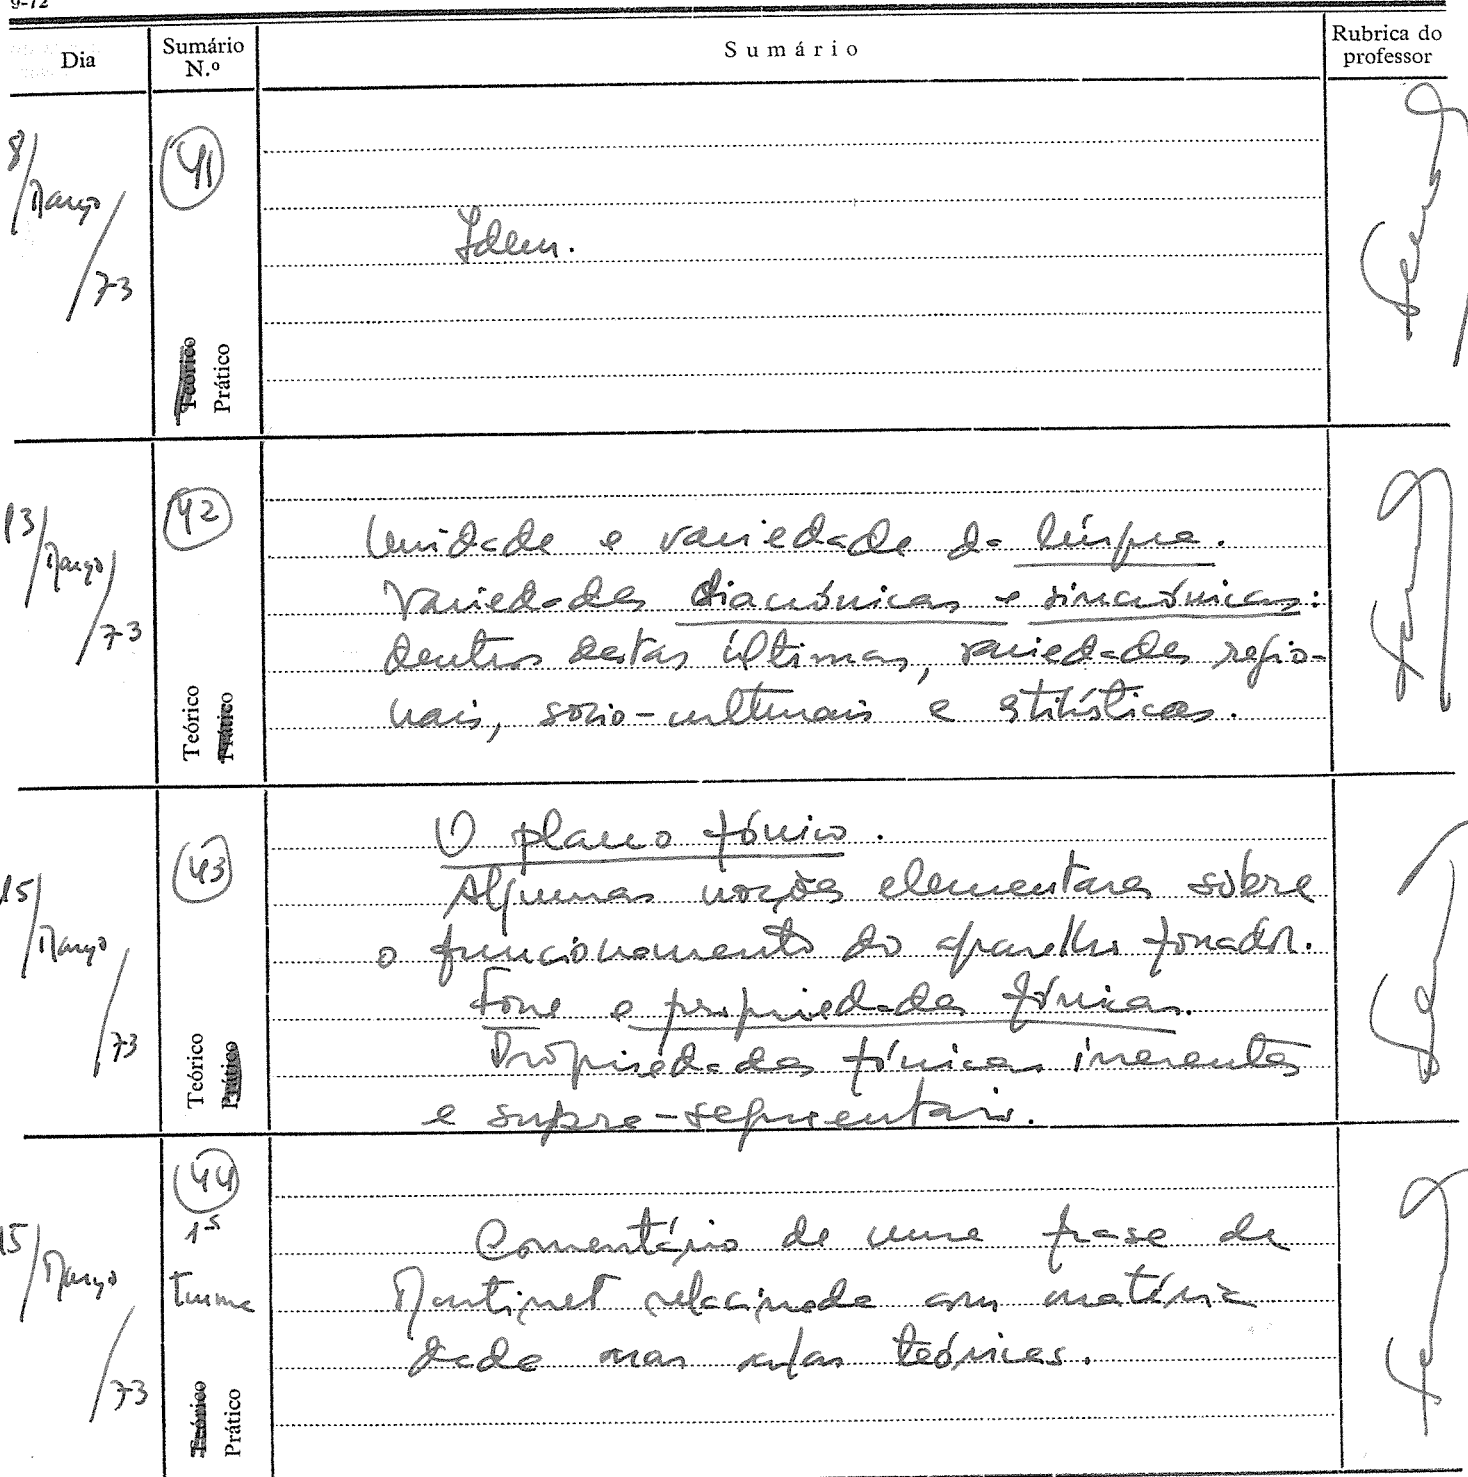 9-72
Dia
Sumário
N.º
Sumário
Rubrica do
professor
8/Março/73
41
Idem.
Teórico
Prático
13/Março/73
42
Unidade e variedade da língua.
Variedades diacrónicas e sincrónicas:
dentro destas últimas, variedades regio-
nais, sócio-culturais e estilísticas.
Teórico
Prático
15/Março/73
43
O plano fónico.
Algumas noções elementares sobre
o funcionamento do aparelho fonador.
Fone e propriedades fónicas.
Propriedades fónicas inerentes
e supra-segmentais.
Teórico
Prático
15/Março/73
44
1ª
Turma
Comentário de uma frase de
Martinet relacionada com matéria
dada nas aulas teóricas.
Teórico
Prático